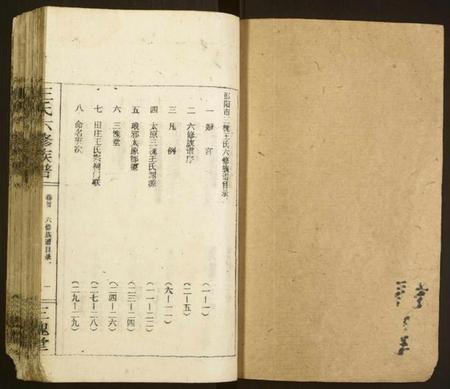 邵阳市三槐王氏六修族谱目录
一 辞言 (一-一)
二 六修族谱序 (二-五)
三 凡例 (六-一一)
四 太原三槐王氏渊源 (一一-二二)
五 琅邪太原郡望 (二三-二四)
六 三槐堂 (二四-二六)
七 田庄王氏宗祠门联 (二七-二八)
八 命名班次 (二九-二九)
王氏六修族谱
卷首 六修族谱目录
一
三槐堂